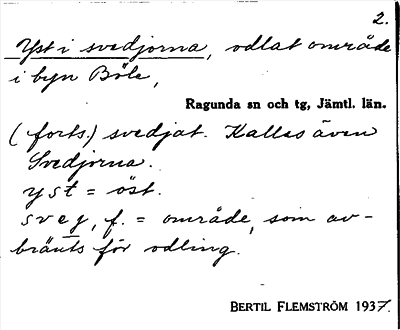 2.
Yst i svedjorna, odlat område
i byn Böle,
Ragunda sn och tg, Jämtl. län.
(forts.) svedjat. Kallas även
Svedjorna.
yst = öst.
sveg, f. = område, som av-
bränts för odling.
BERTIL FLEMSTRÖM 1937.